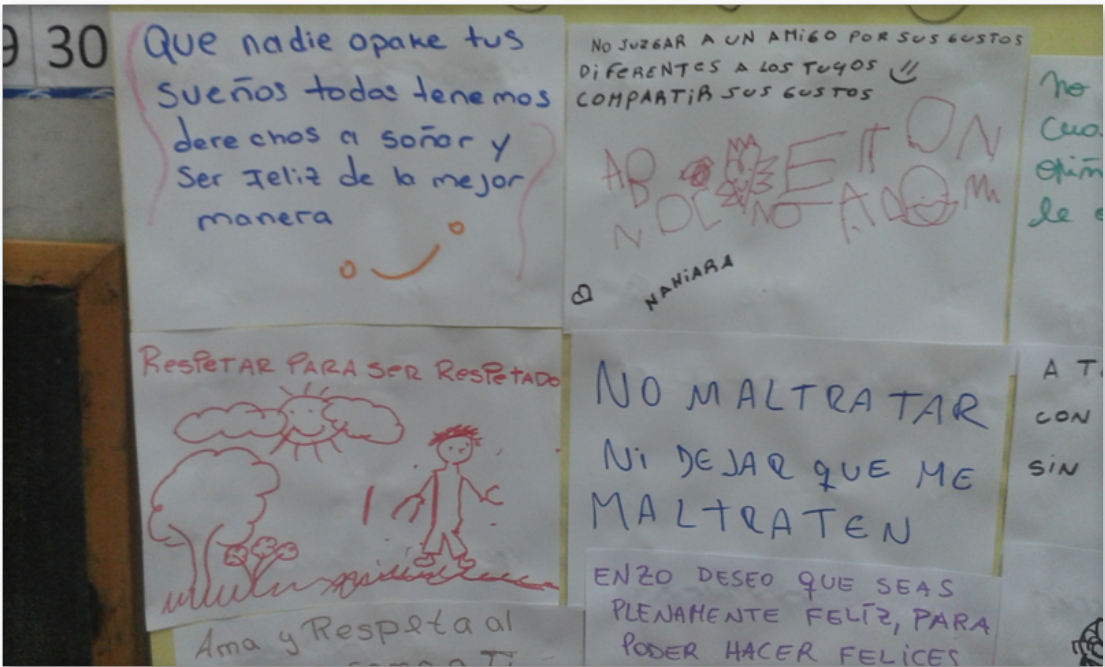 30
Que nadie opake tus
sueños todos tenemos
derechos a soñar y
Ser Feliz de la mejor
manera
NO JUZGAR A UN AMIGO POR SUS GUSTOS
DIFERENTES A LOS TUYOS
COMPARTIR SUS GUSTOS
NAHIARA
no
le
RESPETAR PARA SER RESPETADO
NO MALTRATAR
Ni DEJAR QUE ME
MALTRATEN
A T
CON
SIN
Ama y Respeta al
ENZO DESEO QUE SEAS
PLENAMENTE FELÍZ, PARA
PODER HACER FELICES